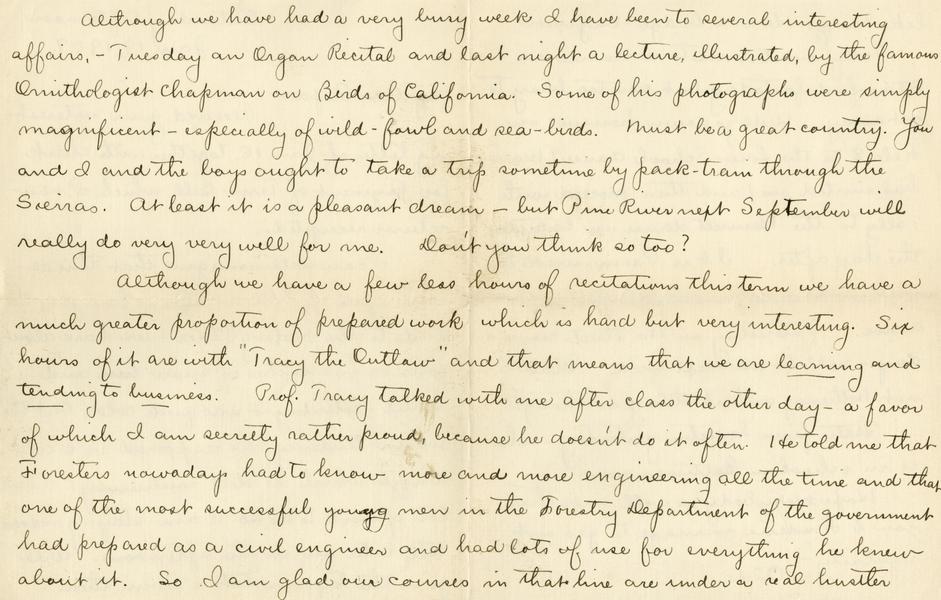 Although we have had a very busy week I have been to several interesting
affairs, - Tuesday an Organ Recital and last night a lecture, illustrated, by the famous
Ornithologist Chapman on Birds of California. Some of his photographs were simply
magnificent - especially of wild-fowl and sea-birds. Must be a great country. You
and I and the boys ought to take a trip sometime by pack-train through the
Sierras. At least it is a pleasant dream - but Pine River next September will
really do very very well for me. Don't you think so too?
Although we have a few less hours of recitations this term we have a
much greater proportion of prepared work which is hard but very interesting. Six
hours of it are with "Tracy the Outlaw" and that means that we are learning and
tending to business. Prof. Tracy talked with me after class the other day - a favor
of which I am secretly rather proud, because he doesn't do it often. He told me that
Foresters nowadays had to know more and more engineering all the time and that
one of the most successful young men in the Forestry Department of the government
had prepared as a civil engineer and had lots of use for everything he knew
about it. So I am glad our courses in that line are under a real hustler